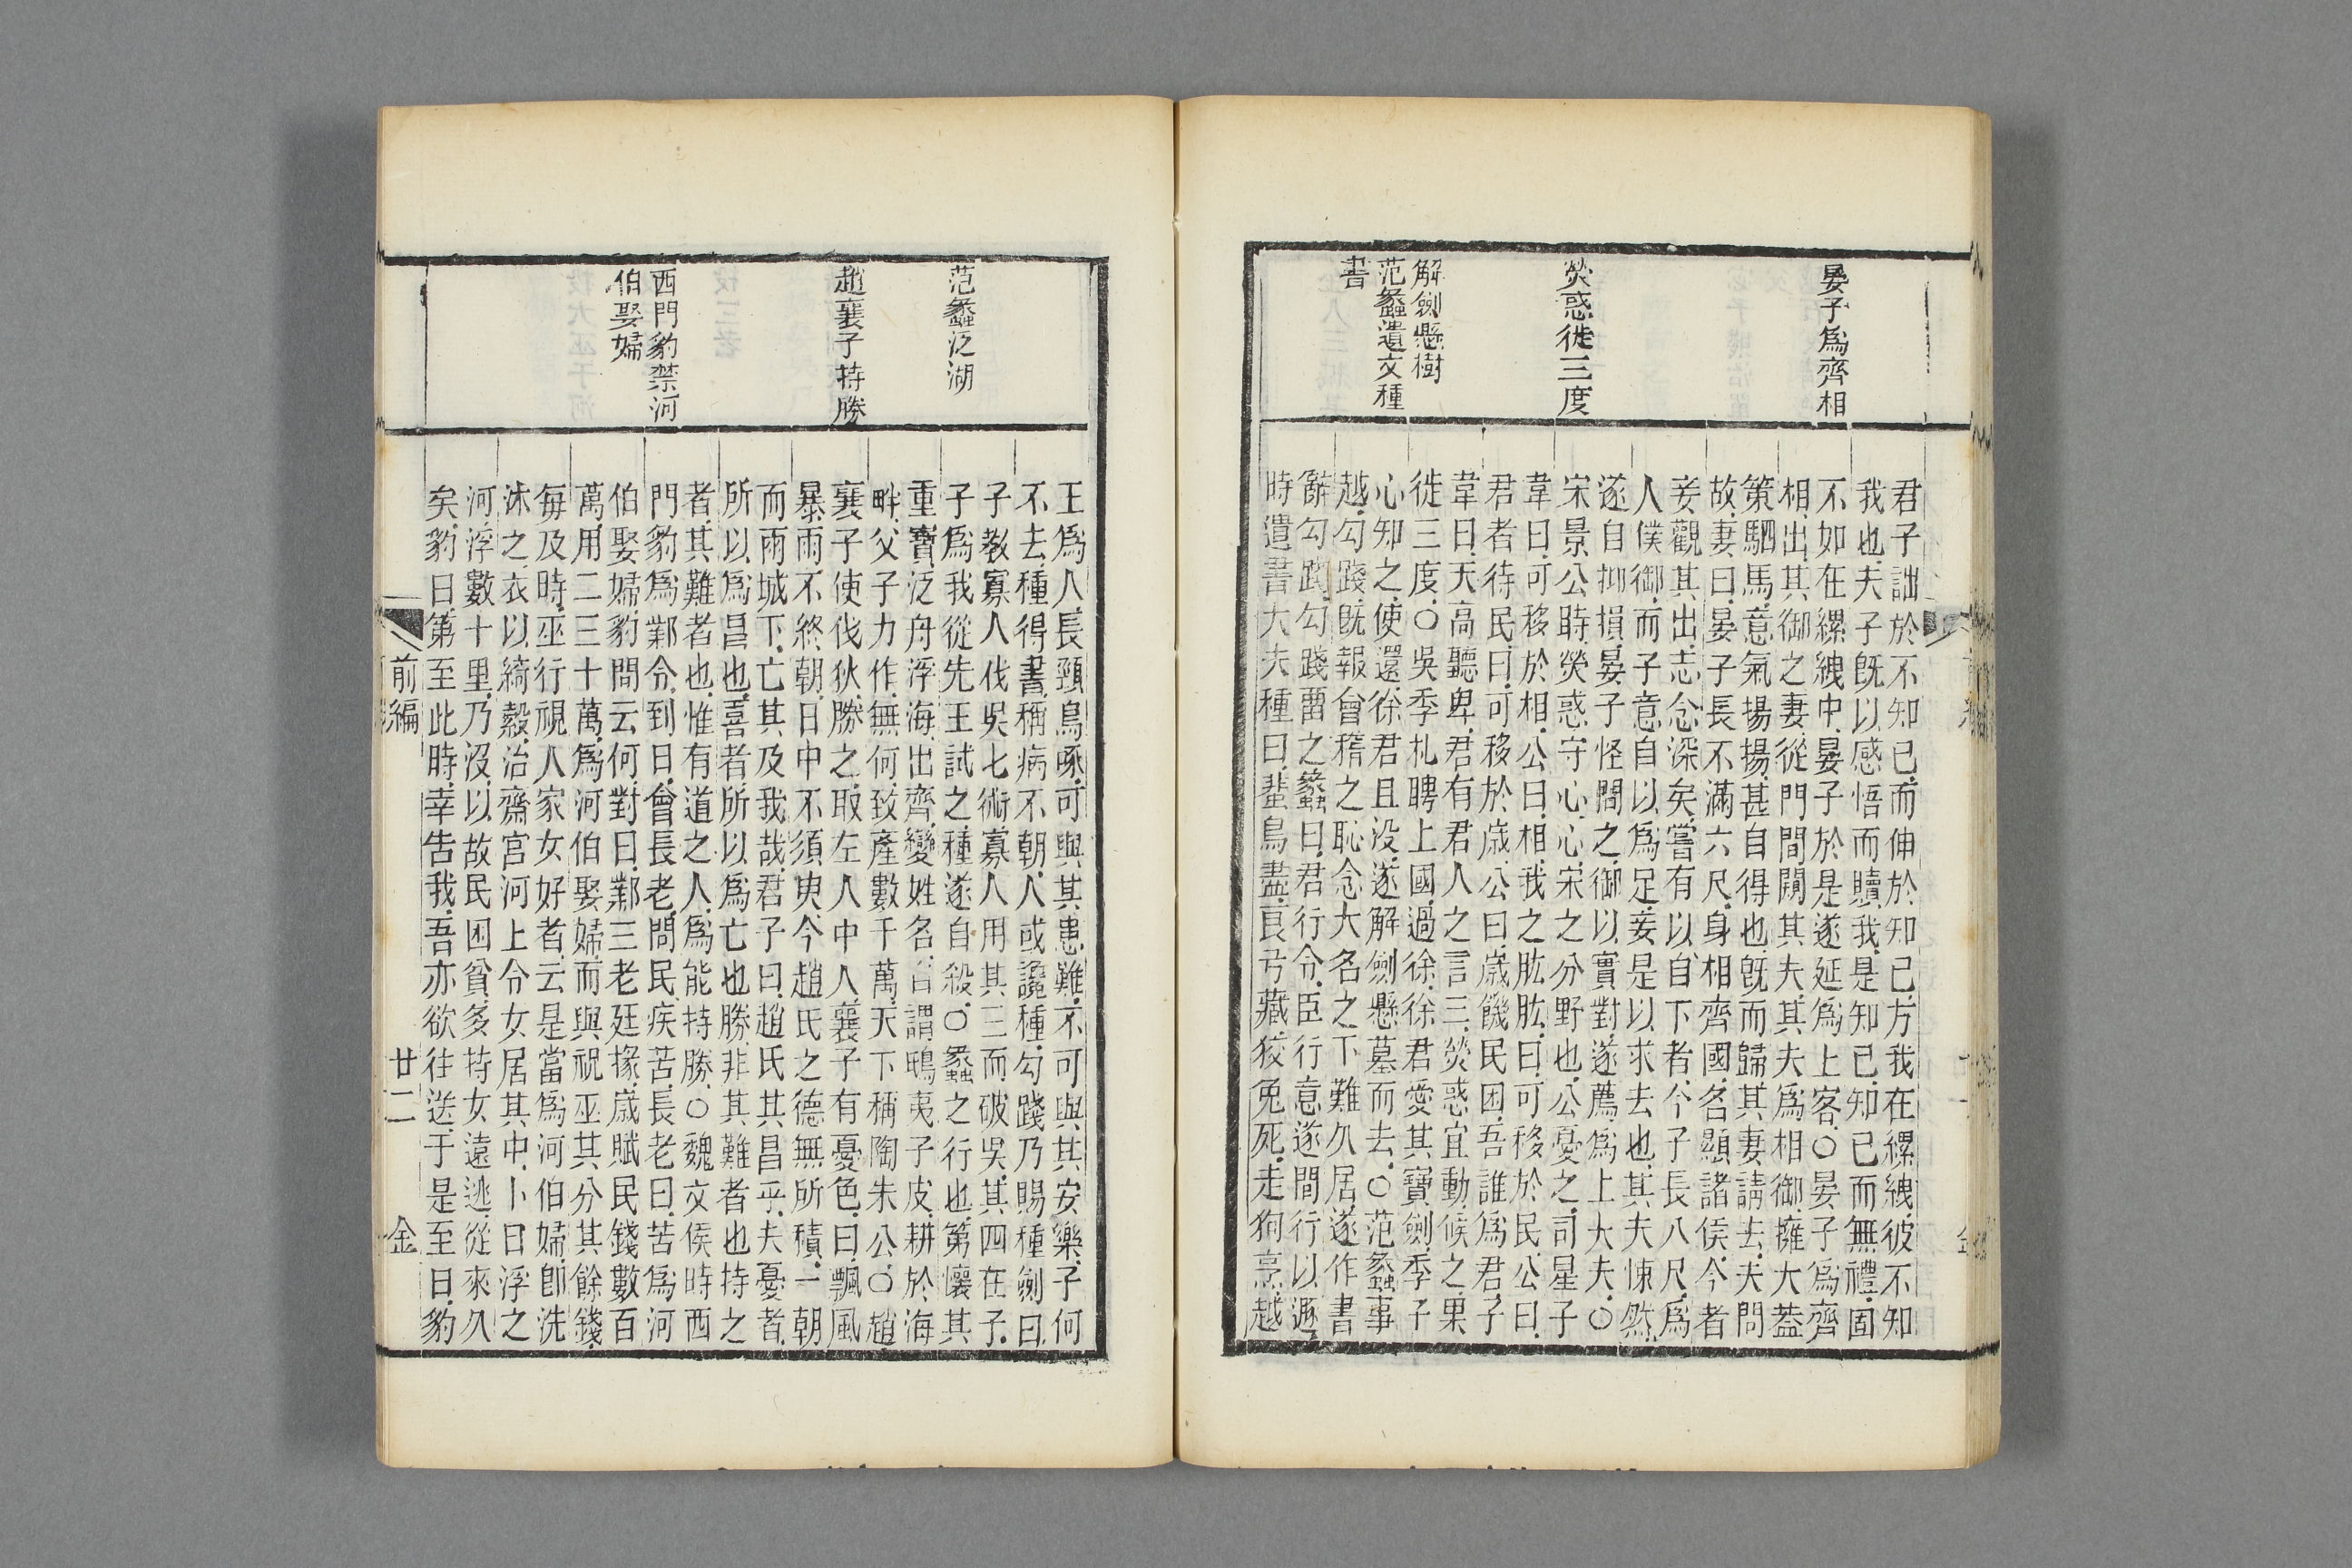 晏子爲齊相
熒惑徙三度
解劍懸樹
范蠡遺文種
書
君子詘於不知己而伸於知己方我在縲紲彼不知
我也夫子旣以感悟而贖我是知己知己而無禮固
不如在縲紲中晏子於是遂延爲上客○晏子爲齊
相出其御之妻從門間闚其夫其夫爲相御擁大蓋
策駟馬意氣揚揚甚自得也旣而歸其妻請去夫問
故妻曰晏子長不滿六尺身相齊國名顯諸侯今者
妾觀其出志念深矣嘗有以自下者今子長八尺爲
人僕御而子意自以爲足妾是以求去也其夫悚然
遂自抑損晏子怪問之御以實對遂薦爲上大夫○
宋景公時熒惑守心心宋之分野也公憂之司星子
韋曰可移於相公曰相我之肱肱曰可移於民公曰
君者待民曰可移於歲公曰歲饑民困吾誰爲君子
韋曰天高聽卑君有君人之言三熒惑宜動候之果
徙三度○吳季札聘上國過徐徐君愛其寶劍季子
心知之使還徐君且没遂解劍懸墓而去○范蠡事
越勾踐旣報會稽之恥念大名之下難久居遂作書
辭勾踐勾踐畱之蠡曰君行令臣行意遂間行以遯
時遺書大夫種曰蜚鳥盡良弓藏狡兔死走狗烹越
范蠡泛湖
趙襄子持勝
西門豹禁河
伯娶婦
王爲人長頸烏啄可與其患難不可與其安樂子何
不去種得書稱病不朝人或讒種勾踐乃賜種劍曰
子教寡人伐吳七術寡人用其三而破吳其四在子
子爲我從先王試之種遂自殺○蠡之行也第懷其
重寶泛舟浮海出齊變姓名自謂鴟夷子皮耕於海
畔父子力作無何致產數千萬天下稱陶朱公○趙
襄子使伐狄勝之取左人中人襄子有憂色曰飄風
暴雨不終朝日中不須臾今趙氏之德無所積一朝
而兩城下亡其及我哉君子曰趙氏其昌乎夫憂者
所以爲昌也喜者所以爲亡也勝非其難者也持之
者其難者也惟有道之人爲能持勝○魏文侯時西
門豹爲鄴令到日會長老問民疾苦長老曰苦爲河
伯娶婦豹問云何對曰鄴三老廷掾歲賦民錢數百
萬用二三十萬爲河伯娶婦而與祝巫其分其餘錢
每及時巫行視人家女好者云是當爲河伯婦卽洗
沐之衣以綺縠治齋宫河上令女居其中卜日浮之
河浮數十里乃沒以故民困貧多持女遠逃從來久
矣豹曰第至此時幸告我吾亦欲往送于是至日豹
前編
廿二
金